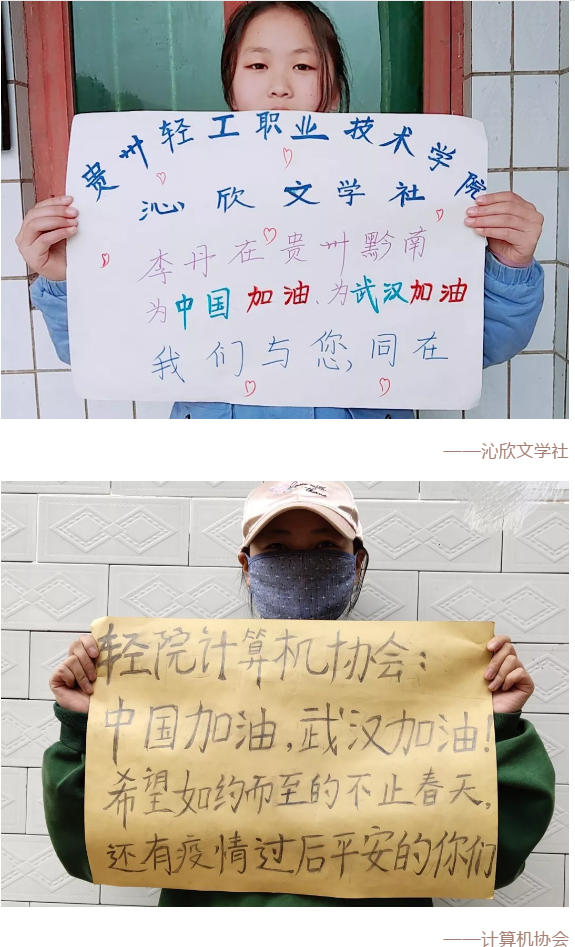 贵州轻工职业技术学院
沁欣文学社
李丹在贵州黔南
为中国加油、为武汉加油
我们与您,同在
——沁欣文学社
轻院计算机协会:
中国加油,武汉加油!
希望如约而至的不止春天,
还有疫情过后平安的你们
——计算机协会